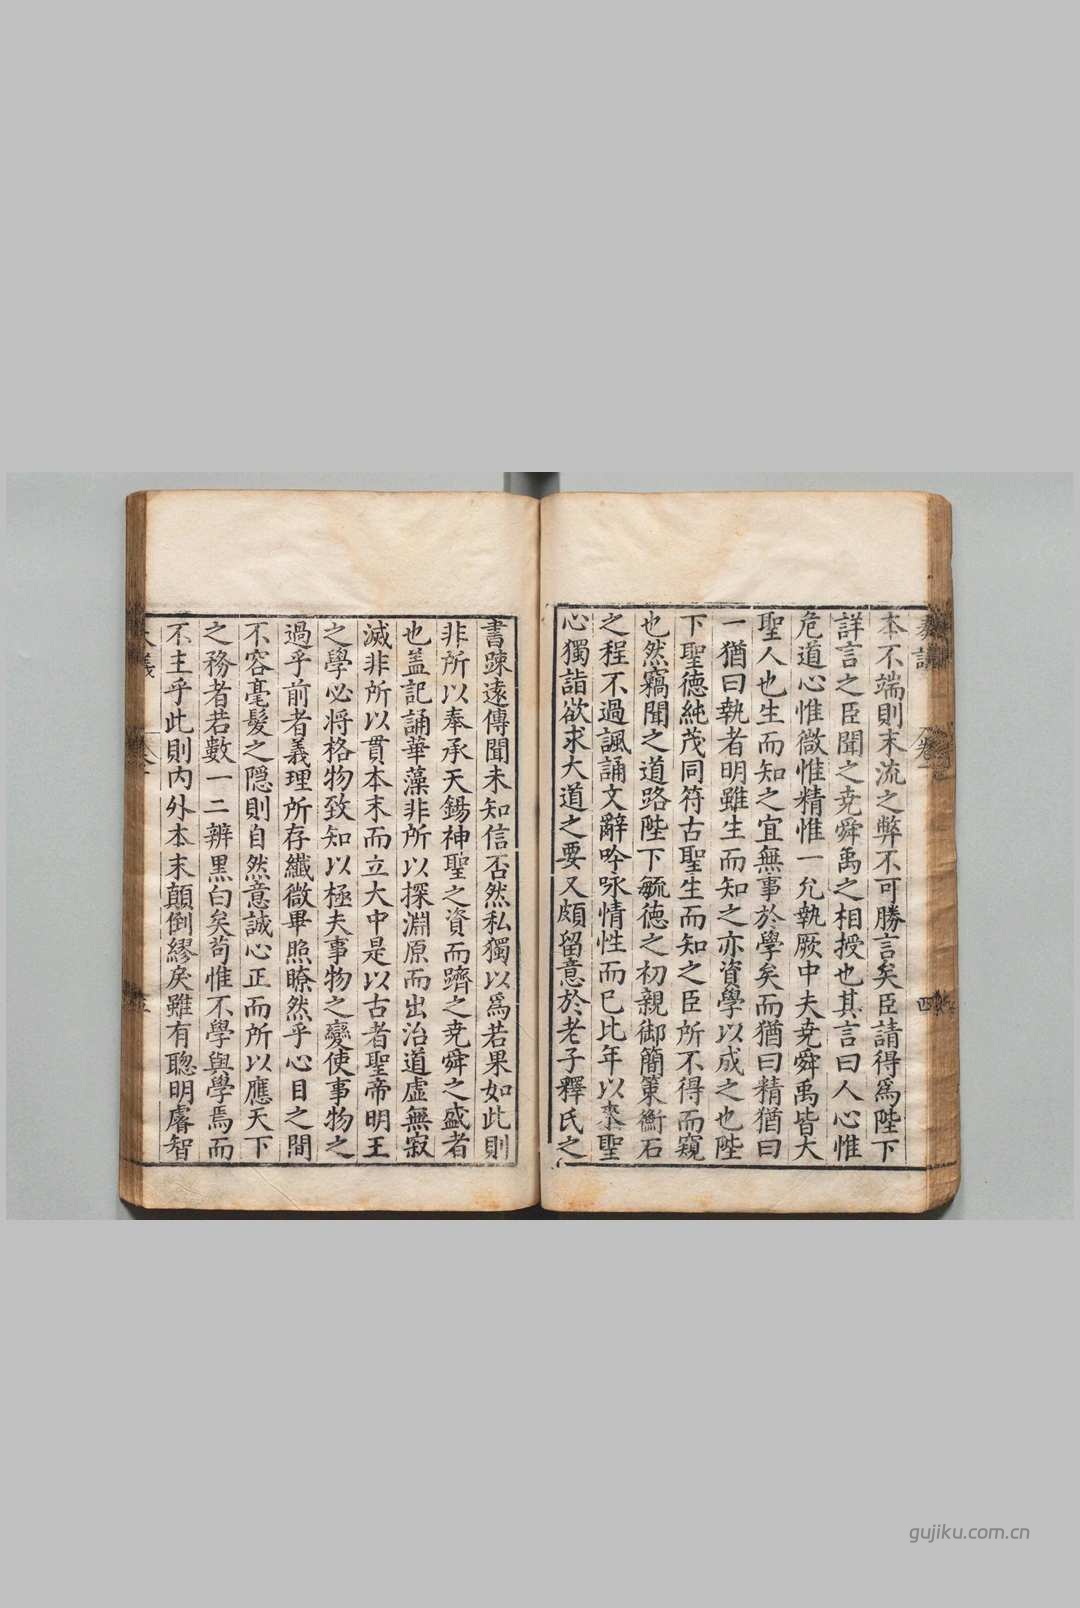 本不端則末流之弊不可勝言矣臣請得爲陛下
詳言之臣聞之尭舜禹之相授也其言曰人心惟
危道心惟微惟精惟一允執厥中夫尭舜禹皆大
聖人也生而知之宜無事於學矣而猶曰精猶曰
一猶曰執者明雖生而知之亦資學以成之也陛
下聖德純茂同符古聖生而知之臣所不得而窺
也然竊聞之道路陛下毓德之初親御簡策衡石
之程不過諷誦文辭吟咏情性而已比年以來聖
心獨詣欲求大道之要又頗留意於老子釋氏之
書踈遠傳聞未知信否然私獨以爲若果如此則
非所以奉承天錫神聖之資而躋之尭舜之盛者
也盖記誦華藻非所以探淵原而出治道虛無寂
滅非所以貫本末而立大中是以古者聖帝明王
之學必將格物致知以極夫事物之變使事物之
過乎前者義理所存纖微畢照瞭然乎心目之間
不容毫髮之隠則自然意誠心正而所以應天下
之務者若數一二辨黒白矣苟惟不學與學焉而
不主乎此則内外本末顛倒繆戾雖有聰明睿智
卷一
四
gujiku.com.cn